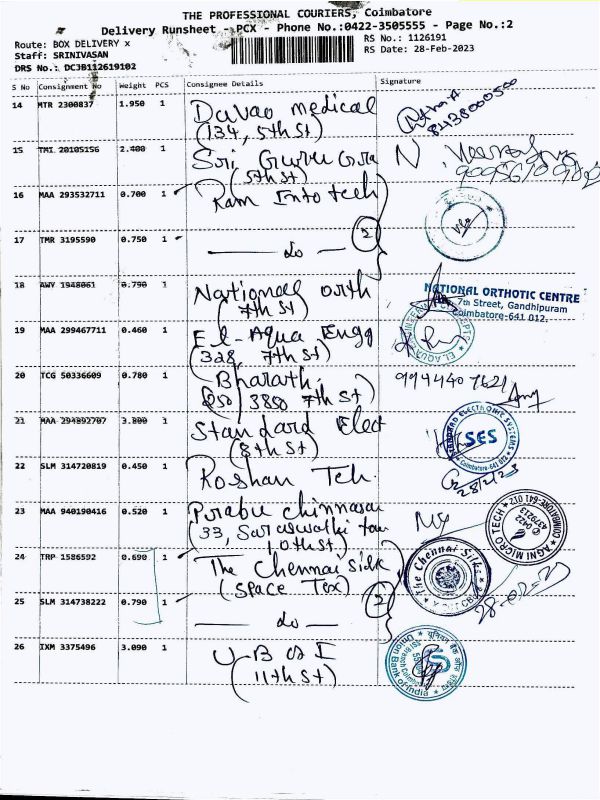 THE PROFESSIONAL COURIERS, Coimbatore
Delivery Runsheet - PCX - Phone No.:0422-3505555 - Page No.:2
Route: BOX DELIVERY x
RS No.: 1126191
Staff: SRINIVASAN
RS Date: 28-Feb-2023
DRS No.: DCJB112619102
S No Consignment No Weight PCS Consignee Details Signature
14 MTR 2300837 1.950 1 Davao medical
(134, 5th St)
8438000500
15 TMI 20105156 2.400 1 Sri Guru
(5th St)
16 MAA 293532711 0.700 1 Ram Info tech
2
17 TMR 3195590 0.750 1 — do —
18 AWY 1948061 0.790 1 National orth
(7th St)
NATIONAL ORTHOTIC CENTRE
7th Street, Gandhipuram
Coimbatore-641 012.
19 MAA 299467711 0.460 1 El-Aqua Engg
(328, 7th St)
20 TCG 50336609 0.780 1 Bharath
250/3850 7th St)
9944407621
21 MAA 294892707 3.800 1 Standard Elect
(8th St)
STANDARD ELECTRONIC SYSTEMS
SES
Coimbatore-641 012
22 SLM 314720819 0.450 1 Roshan Teh.
28/2/23
23 MAA 940190416 0.520 1 Prabu chinnasai
(33, Saraswathi
10th St)
AGNI MICRO TECH
COIMBATORE-641 012
0422
4379213
24 TRP 1586592 0.690 1 The Chennai Silk
(Space Tex)
The Chennai Silks
28-02-23
25 SLM 314738222 0.790 1 — do —
2
26 IXM 3375496 3.090 1 U-B of I
(11th St)
Union Bank of India